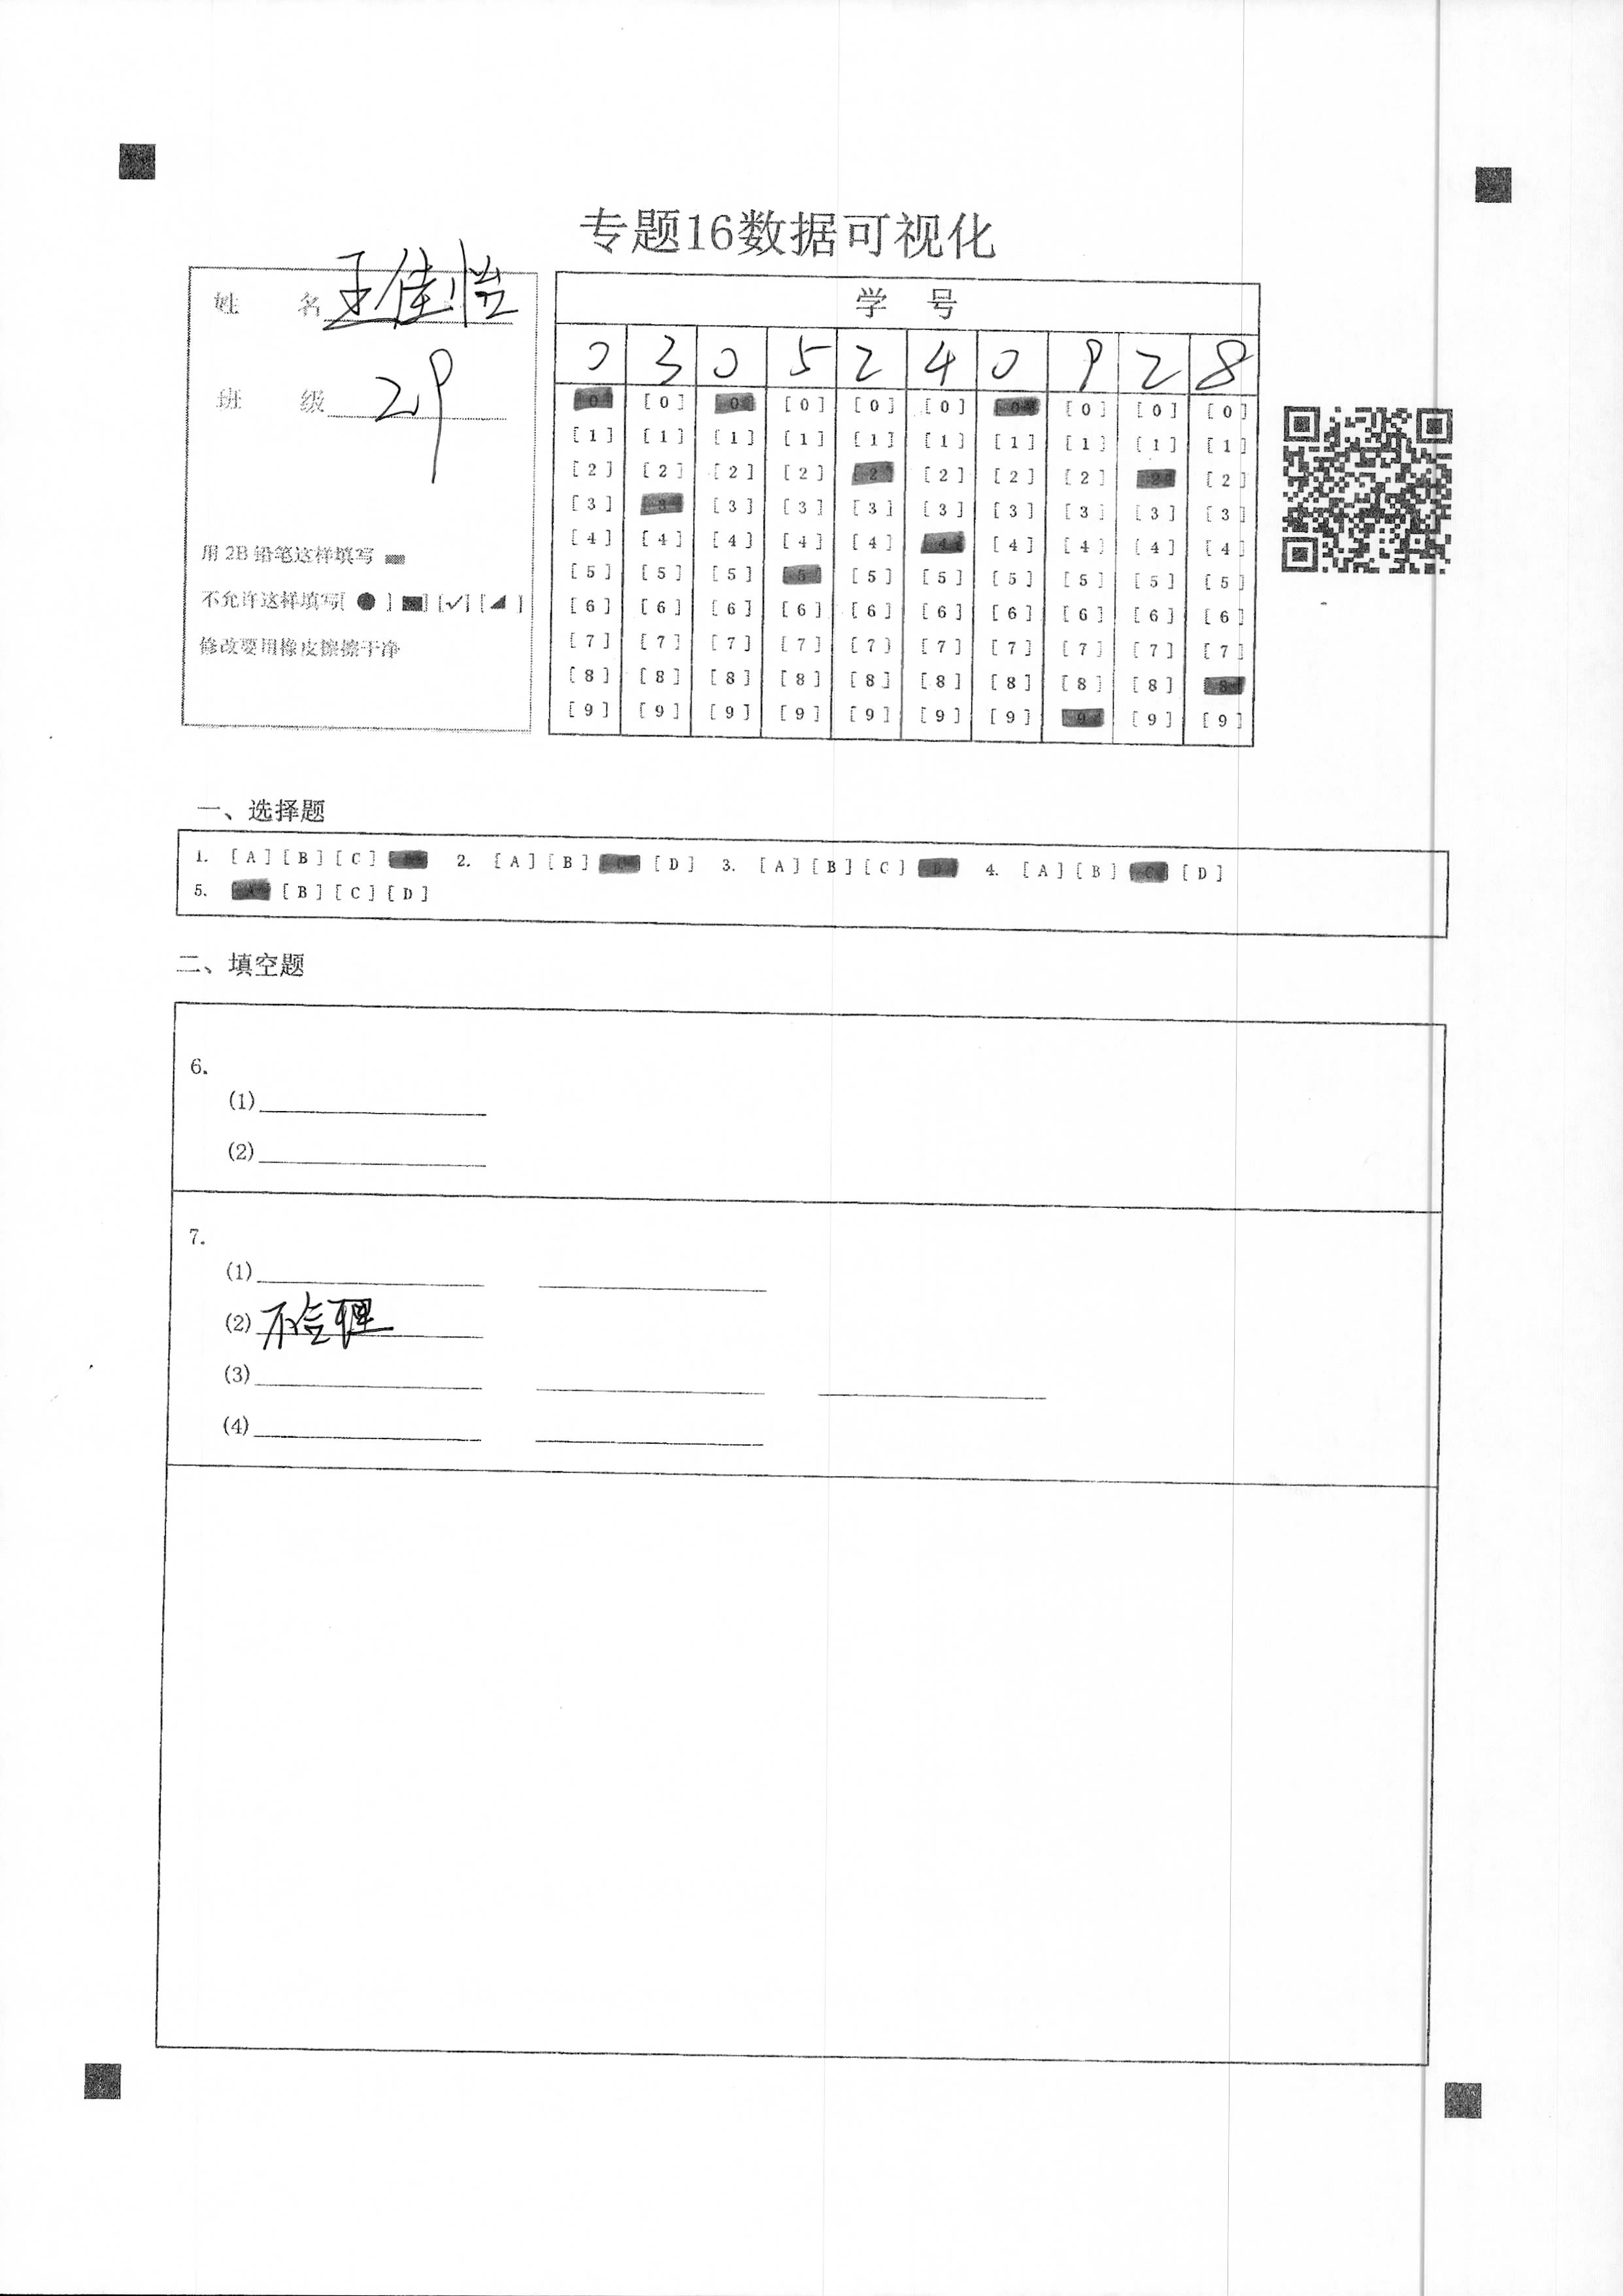 专题16数据可视化
姓 名 王佳怡
班 级 29
用 2B 铅笔这样填写
不允许这样填写[ ● ] [■] [✓] [◢ ]
修改要用橡皮擦擦干净
学 号
0 3 0 5 2 4 0 9 2 8
[0] [0] [0] [0] [0] [0] [0] [0] [0] [0]
[1] [1] [1] [1] [1] [1] [1] [1] [1] [1]
[2] [2] [2] [2] [2] [2] [2] [2] [2] [2]
[3] [3] [3] [3] [3] [3] [3] [3] [3] [3]
[4] [4] [4] [4] [4] [4] [4] [4] [4] [4]
[5] [5] [5] [5] [5] [5] [5] [5] [5] [5]
[6] [6] [6] [6] [6] [6] [6] [6] [6] [6]
[7] [7] [7] [7] [7] [7] [7] [7] [7] [7]
[8] [8] [8] [8] [8] [8] [8] [8] [8] [8]
[9] [9] [9] [9] [9] [9] [9] [9] [9] [9]
一、选择题
1. [A] [B] [C] [D] 2. [A] [B] [C] [D] 3. [A] [B] [C] [D] 4. [A] [B] [C] [D]
5. [A] [B] [C] [D]
二、填空题
6.
(1)
(2)
7.
(1)
(2) 不合理
(3)
(4)